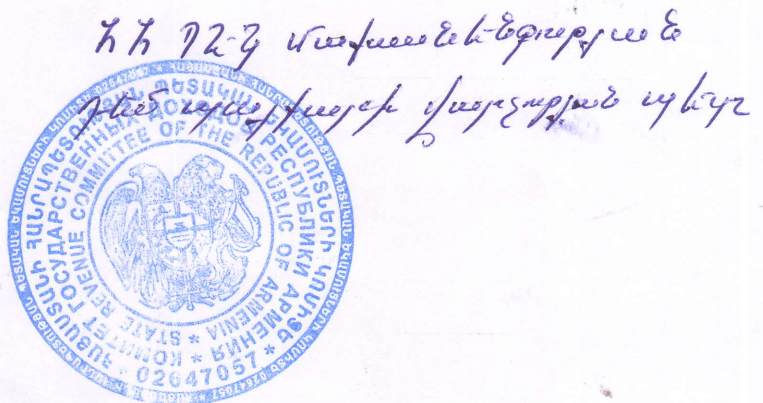 ՀՀ ՊԵԿ մաքսանենգության
դեմ պայքարի վարչության պետ
ՀԱՅԱՍՏԱՆԻ ՀԱՆՐԱՊԵՏՈՒԹՅԱՆ ՊԵՏԱԿԱՆ ԵԿԱՄՈՒՏՆԵՐԻ ԿՈՄԻՏԵ
КОМИТЕТ ГОСУДАРСТВЕННЫХ ДОХОДОВ РЕСПУБЛИКИ АРМЕНИЯ
STATE REVENUE COMMITTEE OF THE REPUBLIC OF ARMENIA
* 02647057 *